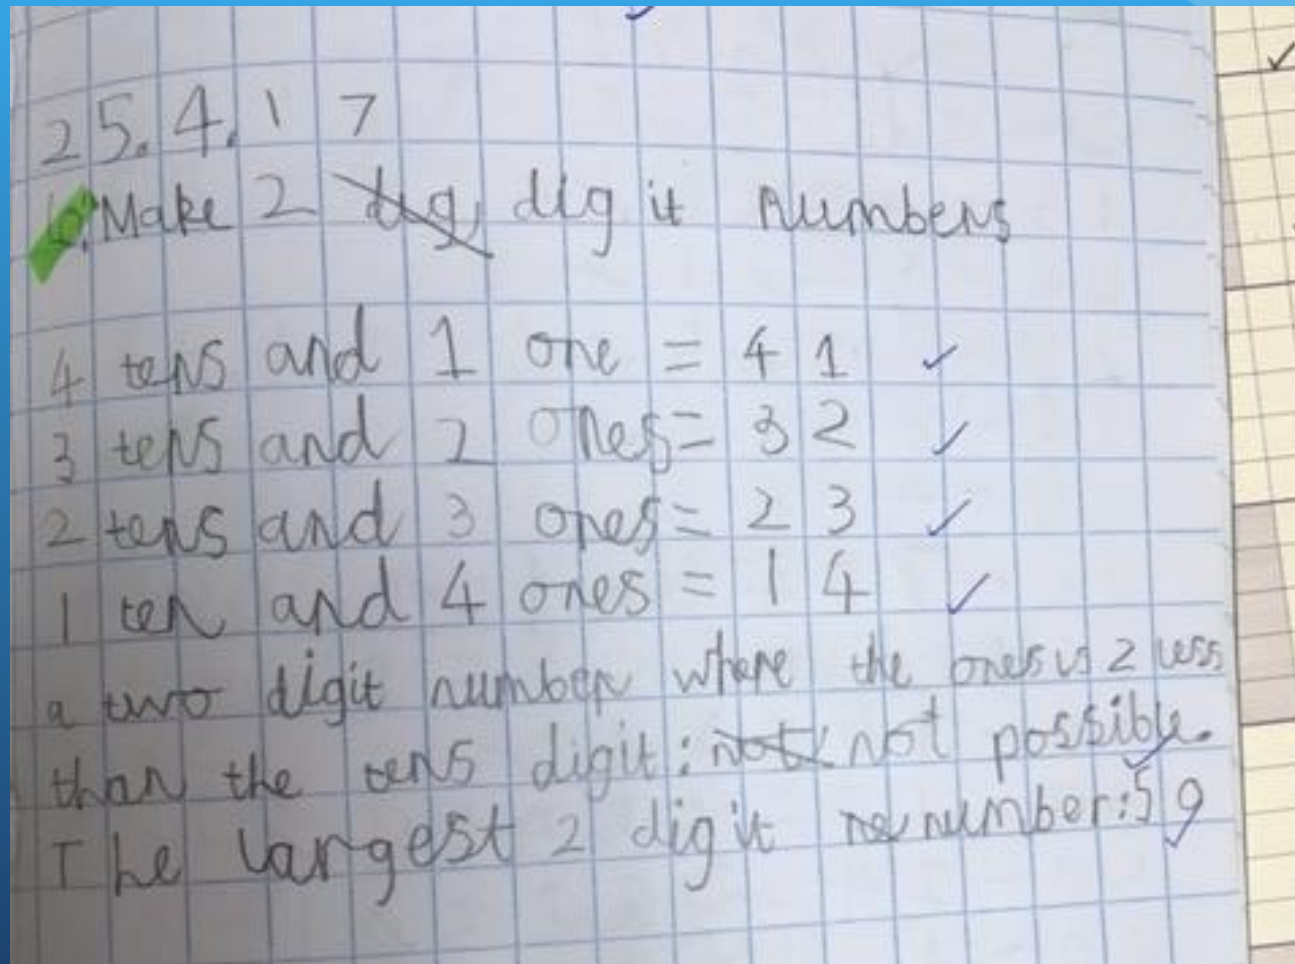 25.4.17
Make 2 dig digit numbers
4 tens and 1 one = 41
3 tens and 2 ones = 32
2 tens and 3 ones = 23
1 ten and 4 ones = 14
a two digit number where the ones is 2 less
than the tens digit: not not possible.
The largest 2 digit number: 59